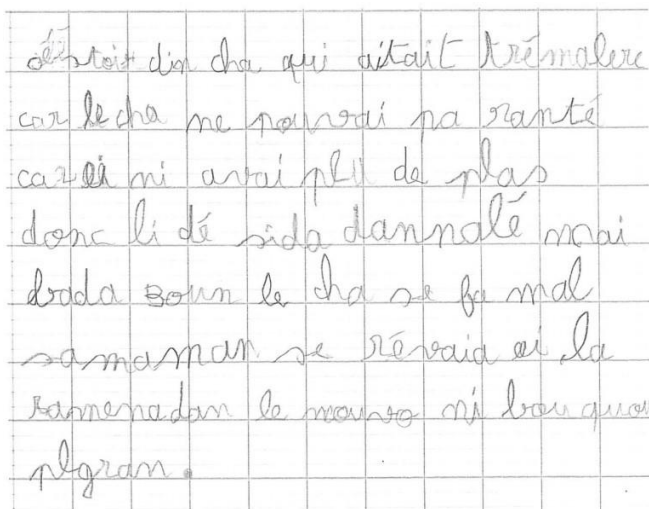 din cha qui aitait trémalere
car le cha ne pouvrai pa ranté
car ni avai plu de plas
donc li dé sida dannalé mai
brada Boun le cha se fa mal
samaman se révaia ei la
ramenadan le nouvo ni bou quou
plgran.